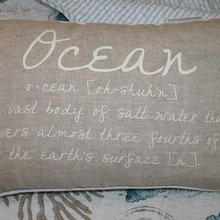 Ocean
o·cean [oh-shuh'n]
vast body of salt water tha
vers almost three fourths of
the earth's surface [n].